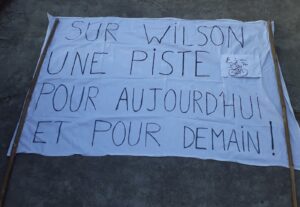 SUR WILSON
UNE PISTE
POUR AUJOURD'HUI
ET POUR DEMAIN !